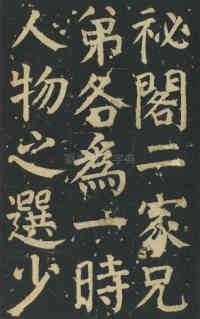 祕閣二家兄
弟各為一時
人物之選少